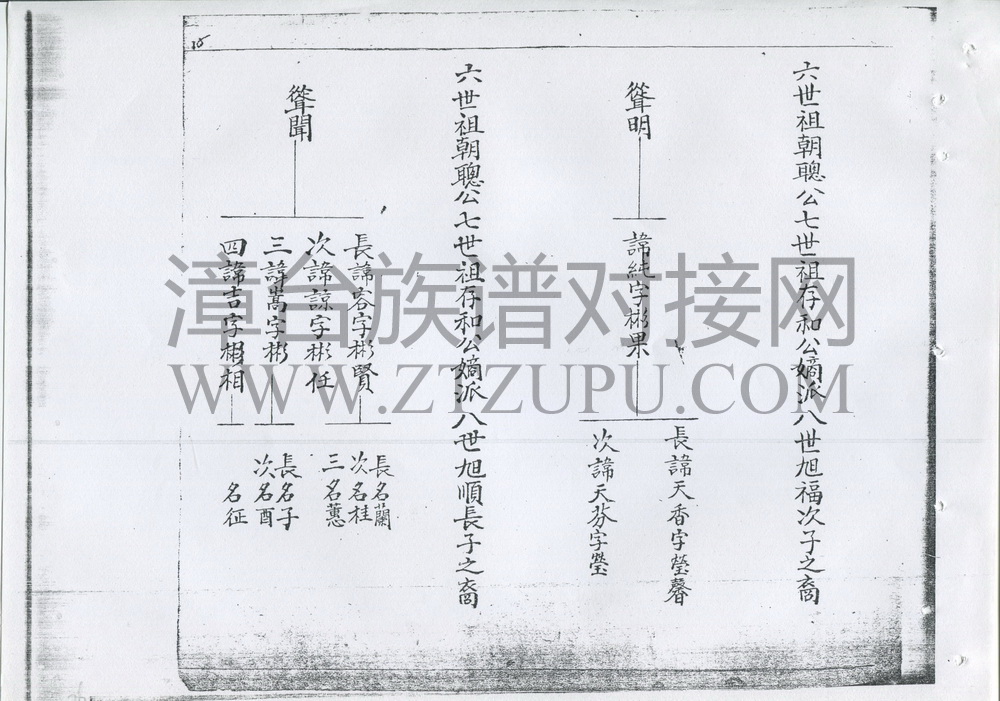 15
六世祖朝聰公七世祖存和公嫡派八世旭福次子之裔
聳明
諱純字彬果
長諱天香字瑩馨
次諱天芬字瑩
六世祖朝聰公七世祖存和公嫡派八世旭順長子之裔
聳聞
長諱容字彬賢
次諱諒字彬任
三諱嵩字彬
四諱吉字彬相
長名蘭
次名桂
三名蕙
長名子
次名酉
名征
漳台族谱对接网
WWW.ZTZUPU.COM